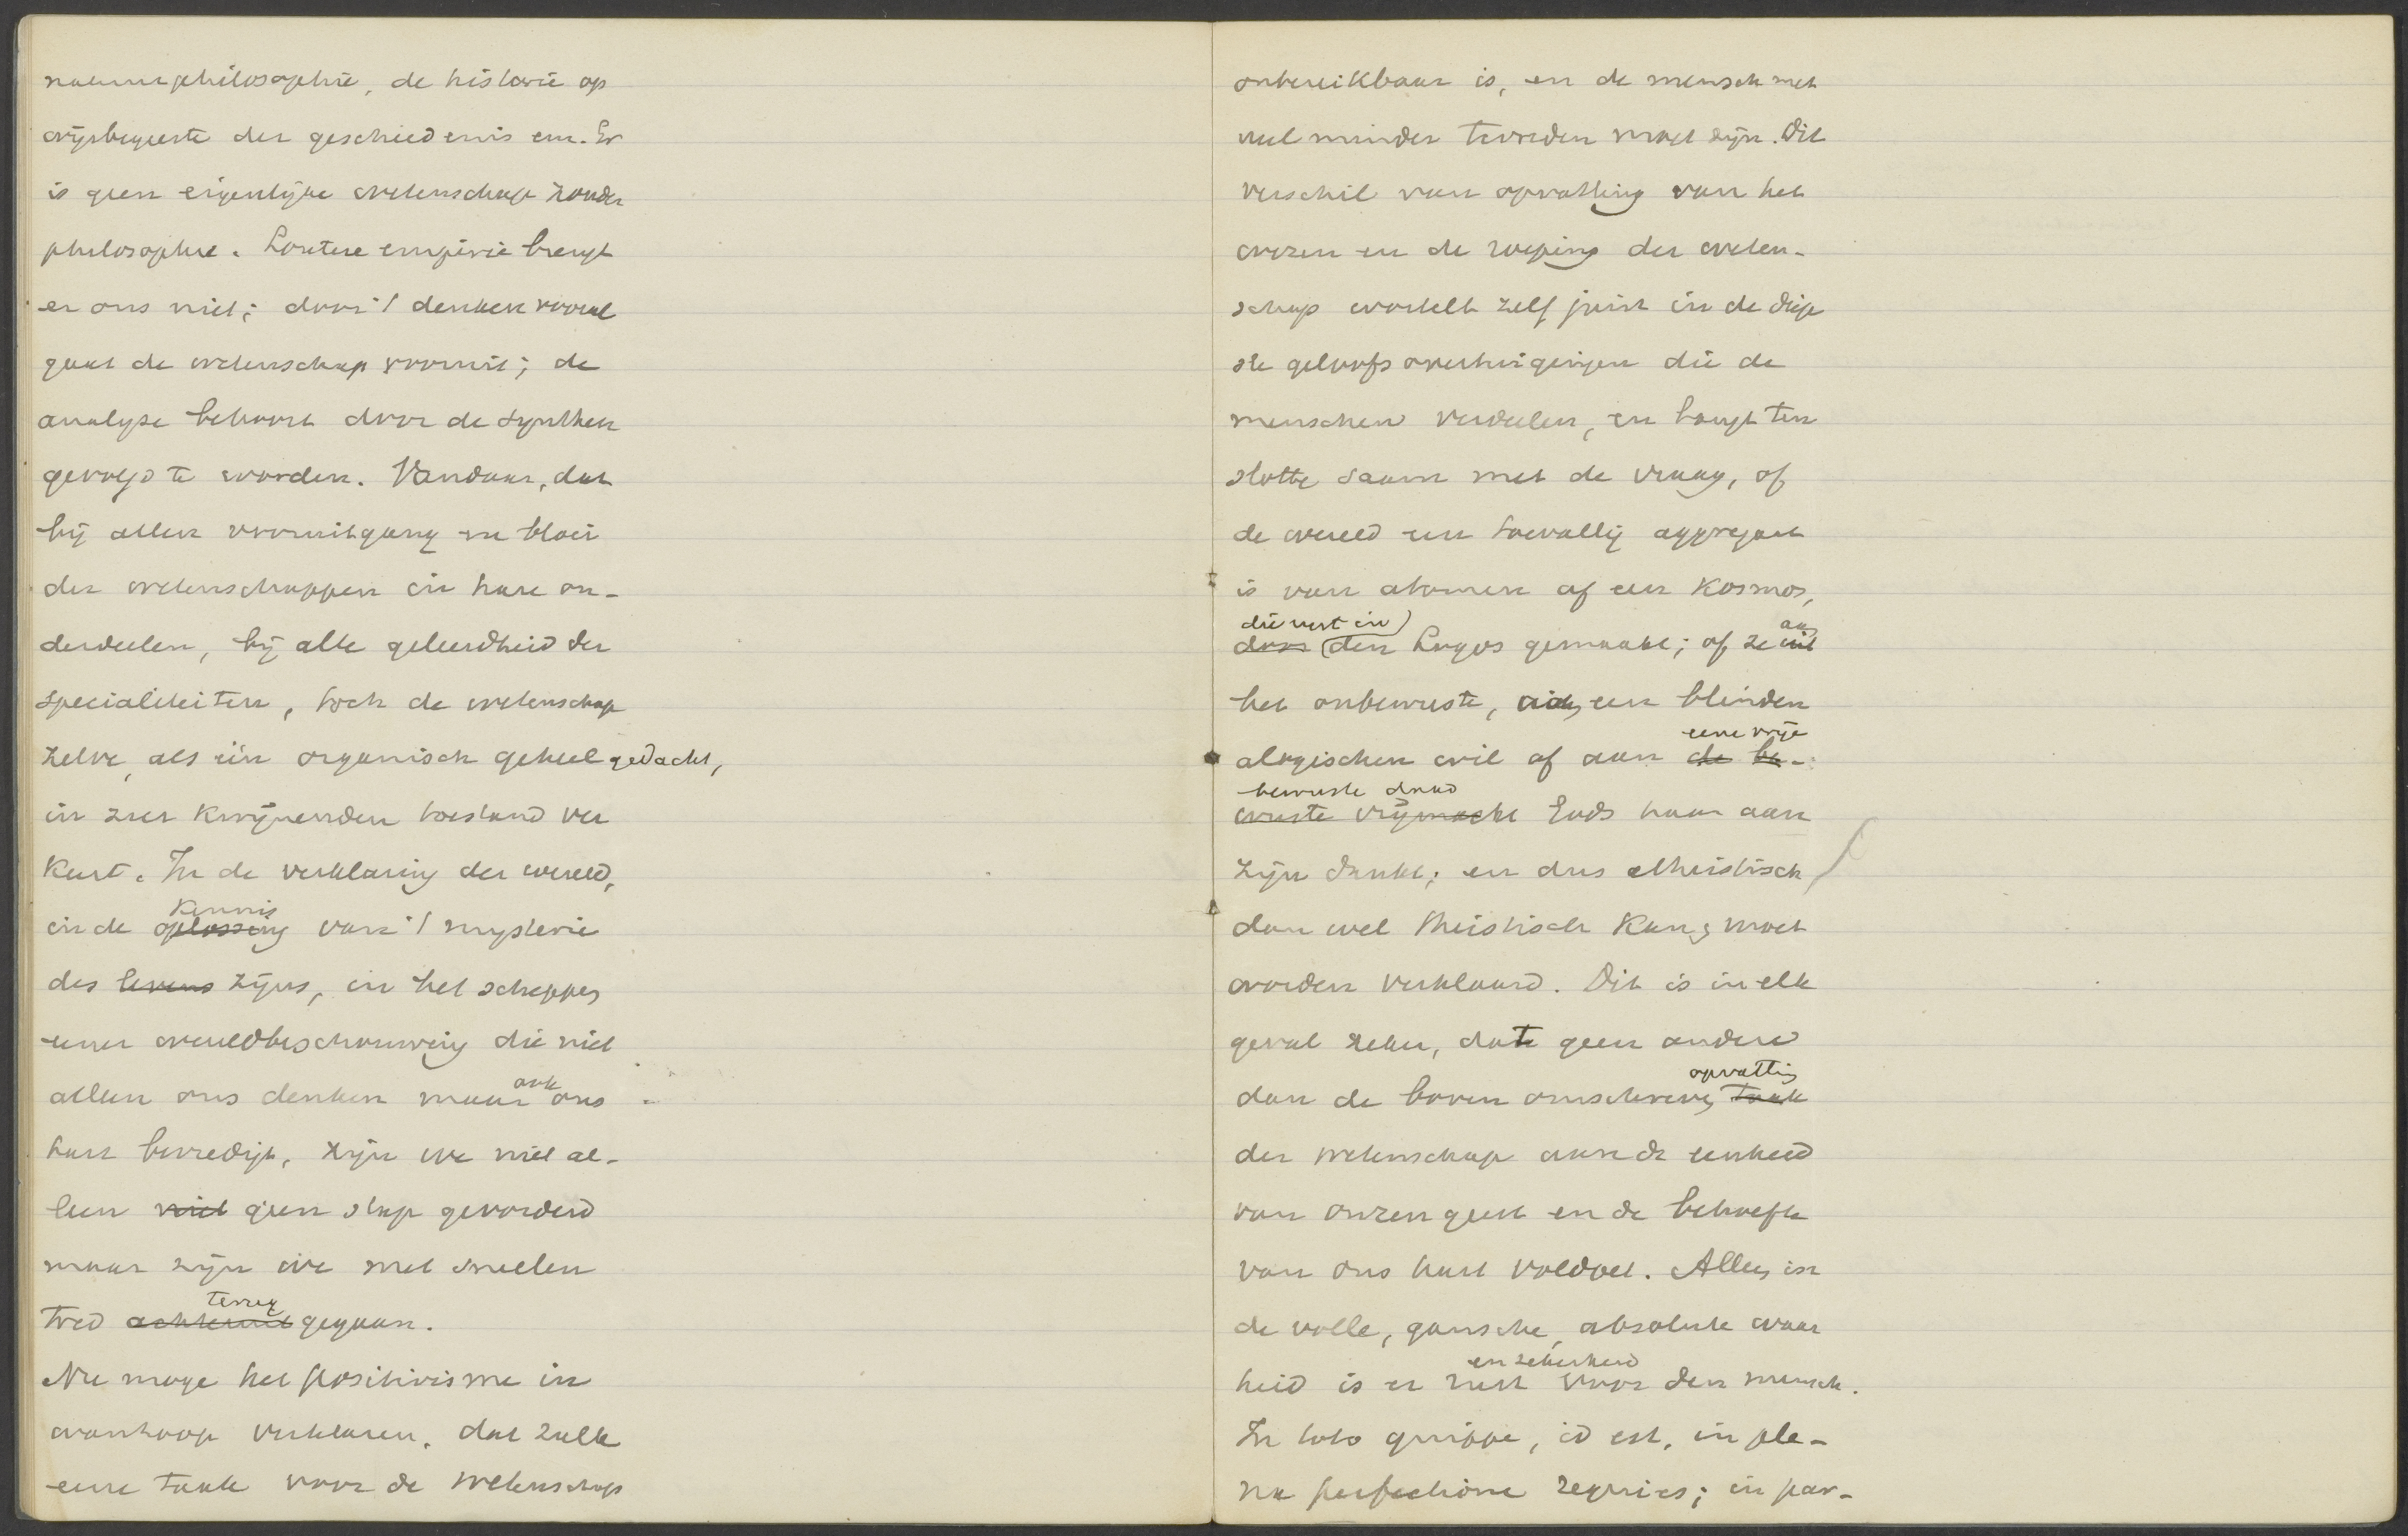 natuurphilosophie, de historie op
wijsbegeerte der geschiedenis enz. Er
is geen eigenlijke wetenschap zonder
philosophie. Loutere empirie brengt
er ons niet; door 't denken vooral
gaat de wetenschap vooruit; de
analyse behoort door de synthese
gevolgd te worden. Vandaar, dat
bij allen vooruitgang en bloei
der wetenschappen in hare on-
derdeelen, bij alle geleerdheid der
specialiteiten, toch de wetenschap
zelve, als één organisch geheel gedacht,
in zeer kwijnenden toestand ver
keert. In de verklaring der wereld,
kennis
in de oplossing van 't mysterie
des levens zijns, in het scheppen
eener wereldbeschouwing die niet
ook
alleen ons denken maar ons
hart bevredigt, zijn we niet al-
leen niet geen stap gevorderd
maar zijn we met snellen
terug
tred achteruit gegaan.
Nu moge het positivisme in
wanhoop verklaren, dat zulk
eene taak voor de wetenschap
onbereikbaar is, en de mensch met
veel minder tevreden moet zijn. Dit
verschil van opvatting van het
wezen en de roeping der weten-
schap wortelt zelf juist in de diep
ste geloofsovertuigingen die de
menschen verdeelen, en hangt ten
slotte saam met de vraag, of
de wereld een toevallig aggregaat
is van atomen of een Kosmos,
die rust in
aan
door den Logos gemaakt; of ze uit
het onbewuste, aan een blinden
eene vrije
alogischen wil of aan de be-
bewuste daad
wuste vrijmacht Gods haar aan
zijn dankt; en dus atheistisch
dan wel theistisch kan, moet
worden verklaard. Dit is in elk
geval zeker, dat geen andere
opvatting
dan de boven omschreven taak
der wetenschap aan de eenheid
van onzen geest en de behoefte
van ons hart voldoet. Alleen in
de volle, gansche, absolute waar
en zekerheid
heid is er rust voor den mensch.
In toto quippe, id est, in ple-
na perfectione requies; in par-